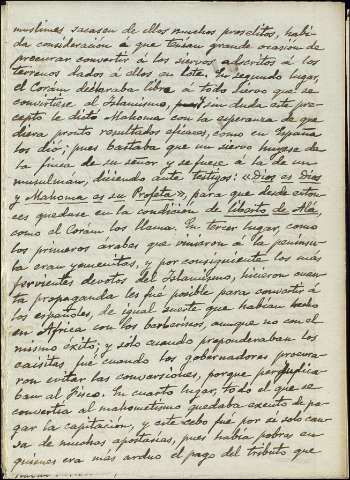 muslimes sacasen de ellos muchos prosélitos, habi-
da consideración a que tenían grande ocasión de
procurar convertir á los siervos adscritos á los
terrenos dados á ellos en lote. En segundo lugar,
el Corán declaraba libre á todo siervo que se
convirtiese al Islamismo, sin duda este pre-
cepto le dictó Mahoma con la esperanza de que
diera pronto resultados eficaces, como en España
los dió; pues bastaba que un siervo huyese de
la finca de su señor y se fuese á la de un
musulmán, diciendo ante testigos: «Dios es Dios
y Mahoma es su Profeta», para que desde enton-
ces quedase en la condición de liberto de Alá,
como el Corán los llama. En tercer lugar, como
los primeros árabes que vinieron á la penínsu-
la eran yemenitas, y por consiguiente los más
fervientes devotos del Islamismo, hicieron cuan-
ta propaganda les fué posible para convertir á
los españoles, de igual suerte que habían hecho
en África con los berberiscos, aunque no con el
mismo éxito; y solo cuando preponderaban los
caisitas fué cuando los gobernadores procura-
ron evitar las conversiones, porque perjudica-
ban al Fisco. En cuarto lugar, todo el que se
convertía al mahometismo quedaba exento de pa-
gar la capitación, y este cebo fué por sí solo cau-
sa de muchas apostasías, pues había pobres en
quienes era más arduo el pago del tributo que